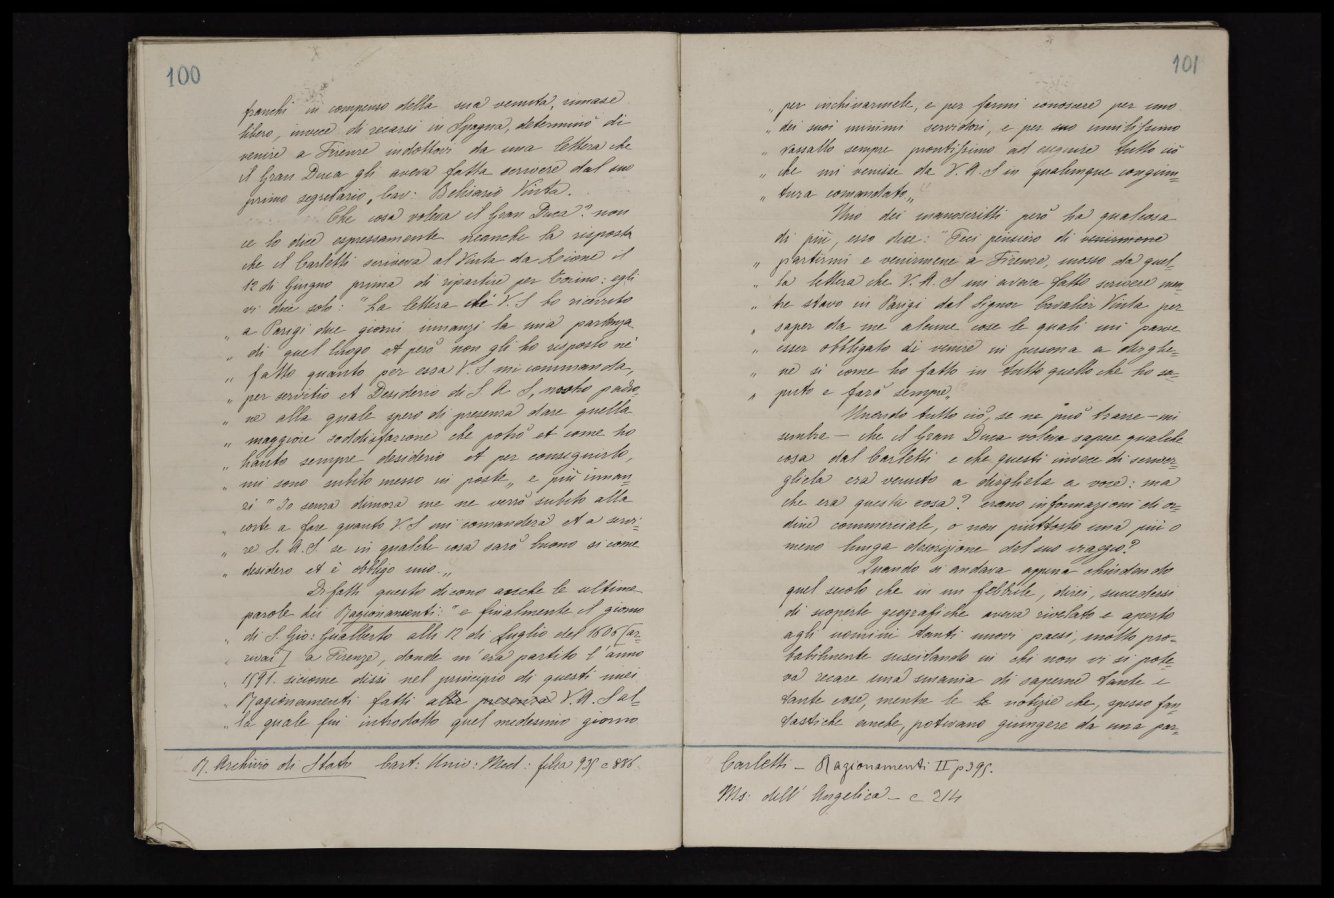 100
franchi in compenso della sua venuta, rimase
libero, invece di recarsi in Spagna, determinò di
venire a Firenze indottovi da una lettera che
il Gran Duca gli aveva fatta scrivere dal suo
primo segretario, Cav: Belisario Vinta.
Che cosa voleva il Gran Duca? non
ce lo dice espressamente neanche la risposta
che il Carletti scriveva al Vinta da Lione il
12 di Giugno prima di ripartire per Torino: egli
vi dice solo: "La lettera che V. S ho ricevuto
„ a Parigi due giorni innanzi la mia partenza
„ di quel luogo et però non gli ho risposto nè
„ fatto quanto per essa V. S mi commanda,
„ per servitio et Desiderio di S. A S, nostro padro-
„ ne alla quale spero di presenza dare quella
„ maggiore soddisfazione che potrò et come ho
„ hauto sempre desiderio et per conseguirlo,
„ mi sono subito messo in poste„ e più innan-
zi "Io senza dimora me ne verrò subito alla
„ corte a fare quanto V. S mi comanderà et a servi-
„ re S. A. S. se in qualche cosa sarò buono si come
„ desidero et è obbligo mio„
Difatti questo dicono anche le ultime
parole dei Ragionamenti: "e finalmente il giorno
„ di S. Gio: Gualberto alli 12 di Luglio del 1606 [ar-
„ rivai] a Firenze, donde m'era partito l'anno
„ 1591. siccome dissi nel principio di questi miei
„ Ragionamenti fatti alla presenza V. A. S al-
„ la quale fui introdotto quel medesimo giorno
R. Archivio di Stato Cart: Univ: Med: filza 935 c 886.
101
„ per inchinarmele, e per farmi conoscere per uno
„ dei suoi minimi servidori, e per suo umilissimo
„ vassallo sempre prontissimo ad eseguire tutto ciò
„ che mi venisse da V. A. S in qualunque congiun-
„ tura comandato„
Uno dei manoscritti però ha qualcosa
di più, esso dice: "Feci pensiero di venirmene
„ partirmi e venirmene a Firenze, mosso da quel-
„ la lettera che V. A. S mi aveva fatto scrivere men-
„ tre stavo in Parigi dal Signor Cavalier Vinta per
„ saper da me alcune cose le quali mi parve
„ esser obbligato di venire in persona a dirglie-
„ ne si come ho fatto in tutto quello che ho sa-
„ puto e farò sempre„
Unendo tutto ciò, se ne può trarre - mi
sembra - che il Gran Duca voleva sapere qualche
cosa dal Carletti e che questi invece di scriver-
gliela era venuto a dirgliela a voce: ma
che era questa cosa? erano informazioni di or-
dine commerciale, o non piuttosto una più o
meno lunga descrizione del suo viaggio?
Quando si andava appena chiudendo
quel secolo che in un febbrile, direi, succedersi
di scoperte geografiche aveva rivelato e aperto
agli uomini tanti nuovi paesi, molto pro-
babilmente suscitando in chi non vi si pote-
va recare una smania di saperne tante e
tante cose, mentre le notizie che, spesso fan-
tastiche anche, potevano giungere da una par-
Carletti - Ragionamenti II p 395.
Ms. dell'Angelica - c 214